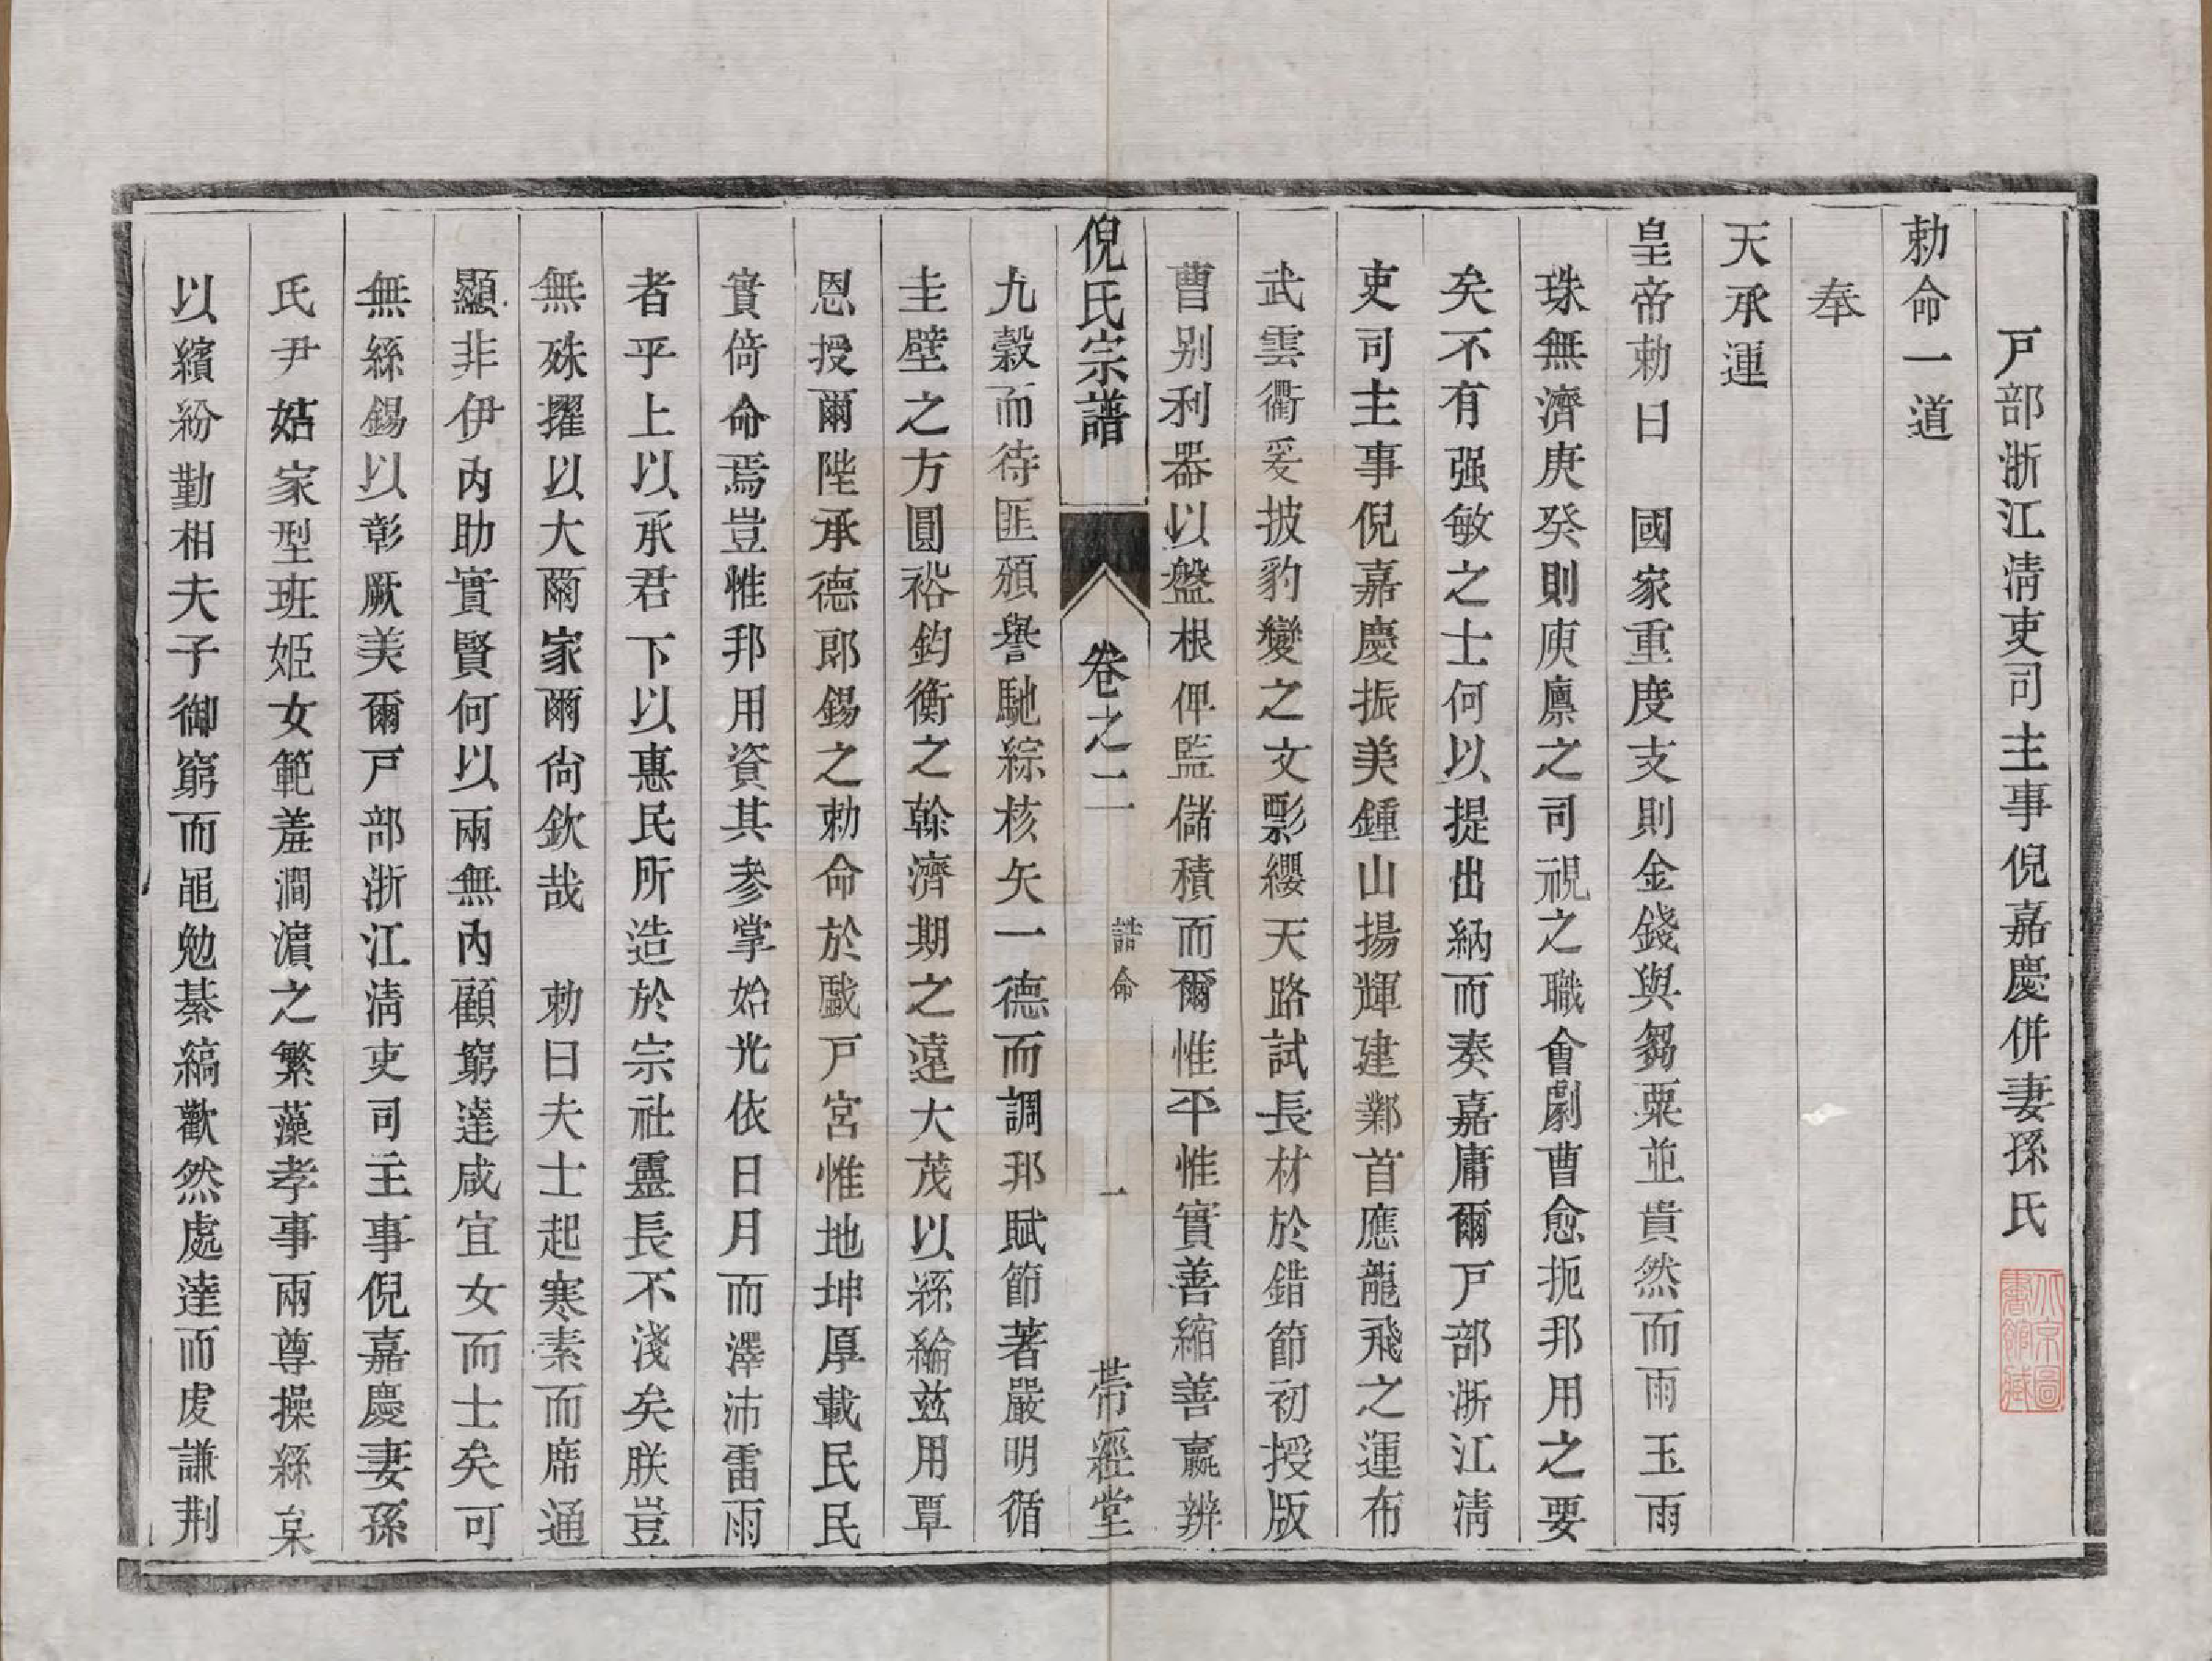 戸部浙江淸吏司主事倪嘉慶併妻孫氏
勅命一道
奉
天承運
皇帝勅曰　國家重度支則金錢與芻粟並貴然而雨玉雨
珠無濟庚癸則庾廪之司視之職會劇曹愈扼邦用之要
矣不有强敏之士何以提出納而奏嘉庸爾戸部浙江淸
吏司主事倪嘉慶振美鍾山揚輝建鄴首應龍飛之運布
武雲衢爰披豹變之文影纓天路試長材於錯節初授版
曹别利器以盤根俾監儲積而爾惟平惟實善縮善贏辨
倪氏宗譜
卷之二
誥命
一
帶經堂
九穀而待匪頒譽馳綜核矢一德而調邦賦節著嚴明循
圭壁之方圓裕鈞衡之榦濟期之遠大茂以絲綸玆用覃
恩授爾陞承德郞錫之勅命於戱戸宮惟地坤厚載民民
實倚命焉豈惟邦用資其參掌始光依日月而澤沛雷雨
者乎上以承君下以惠民所造於宗社靈長不淺矣朕豈
無殊擢以大爾家爾尙欽哉　勅曰夫士起寒素而席通
顯非伊內助實賢何以兩無內顧窮達咸宜女而士矣可
無絲錫以彰厥美爾戸部浙江淸吏司主事倪嘉慶妻孫
氏尹姞家型班姬女範羞澗濵之繁藻孝事兩尊操絲枲
以繽紛勤相夫子御窮而黽勉綦縞歡然處達而虔謙荆
北京圖書館藏